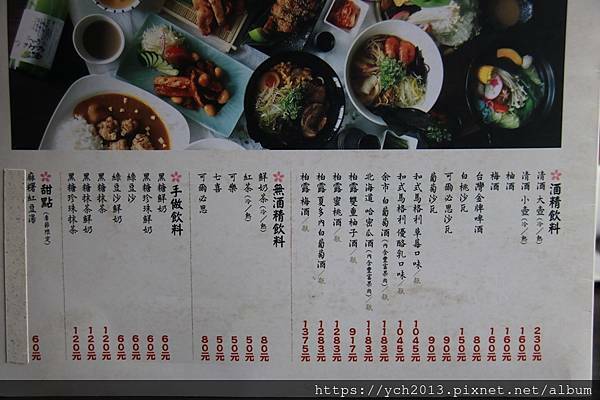 酒精飲料
清酒 大壺(冷/熱) 230元
清酒 小壺(冷/熱) 160元
柚酒 160元
梅酒 160元
台灣金牌啤酒 80元
白桃沙瓦 150元
可爾必思沙瓦 90元
葡萄沙瓦 90元
扣式馬格利 草莓口味/瓶 1045元
扣式馬格利 優酪乳口味/瓶 1045元
余市 白葡萄酒(內含豐富果肉)/瓶 1183元
北海道 哈密瓜酒(內含豐富果肉)/瓶 1183元
柏露 雙重柚子酒/瓶 917元
柏露 蜜桃酒/瓶 1283元
柏露 夏多內白葡萄酒/瓶 1283元
柏露 梅酒/瓶 1375元
無酒精飲料
鮮奶茶(冷/熱) 80元
紅茶(冷/熱) 50元
可樂 50元
七喜 50元
可爾必思 80元
手做飲料
黑糖鮮奶 60元
黑糖珍珠鮮奶 60元
綠豆沙鮮奶 60元
綠豆沙 60元
黑糖抹茶 120元
黑糖抹茶鮮奶 120元
黑糖珍珠抹茶 120元
甜點(季節限定)
麻糬紅豆湯 60元
https://ych2013.pixnet.net/album